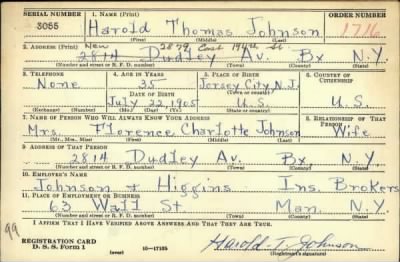 SERIAL NUMBER 1. NAME (Print) ORDER NUMBER
3055 Harold Thomas Johnson 1716
(First) (Middle) (Last)
2. ADDRESS (Print) New 2879 East 194th St
2814 Dudley Av. Bx N.Y.
(Number and street or R. F. D. number) (Town) (County) (State)
3. TELEPHONE 4. AGE IN YEARS 5. PLACE OF BIRTH 6. COUNTRY OF CITIZENSHIP
None 35 Jersey City, N.J.
DATE OF BIRTH (Town or county)
July 22, 1905 U.S. U.S.
(Exchange) (Number) (Mo.) (Day) (Yr.) (State or country)
7. NAME OF PERSON WHO WILL ALWAYS KNOW YOUR ADDRESS 8. RELATIONSHIP OF THAT PERSON
Mrs. Florence Charlotte Johnson Wife
(Mr., Mrs., Miss) (First) (Middle) (Last)
9. ADDRESS OF THAT PERSON
2814 Dudley Av. Bx, N.Y.
(Number and street or R. F. D. number) (Town) (County) (State)
10. EMPLOYER'S NAME
Johnson + Higgins Ins. Brokers
11. PLACE OF EMPLOYMENT OR BUSINESS
63 Wall St Man. N.Y.
(Number and street or R. F. D. number) (Town) (County) (State)
I AFFIRM THAT I HAVE VERIFIED ABOVE ANSWERS AND THAT THEY ARE TRUE.
99
REGISTRATION CARD
D. S. S. Form 1 16—17105 Harold T. Johnson
(Registrant's signature)